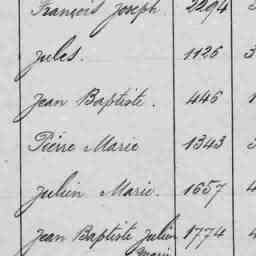 François Joseph 2294
Jules. 1126 3
Jean Baptiste. 446 1
Pierre Marie 1343 3
Julien Marie. 1657 4
Jean Baptiste Julien 1774 4
Marie